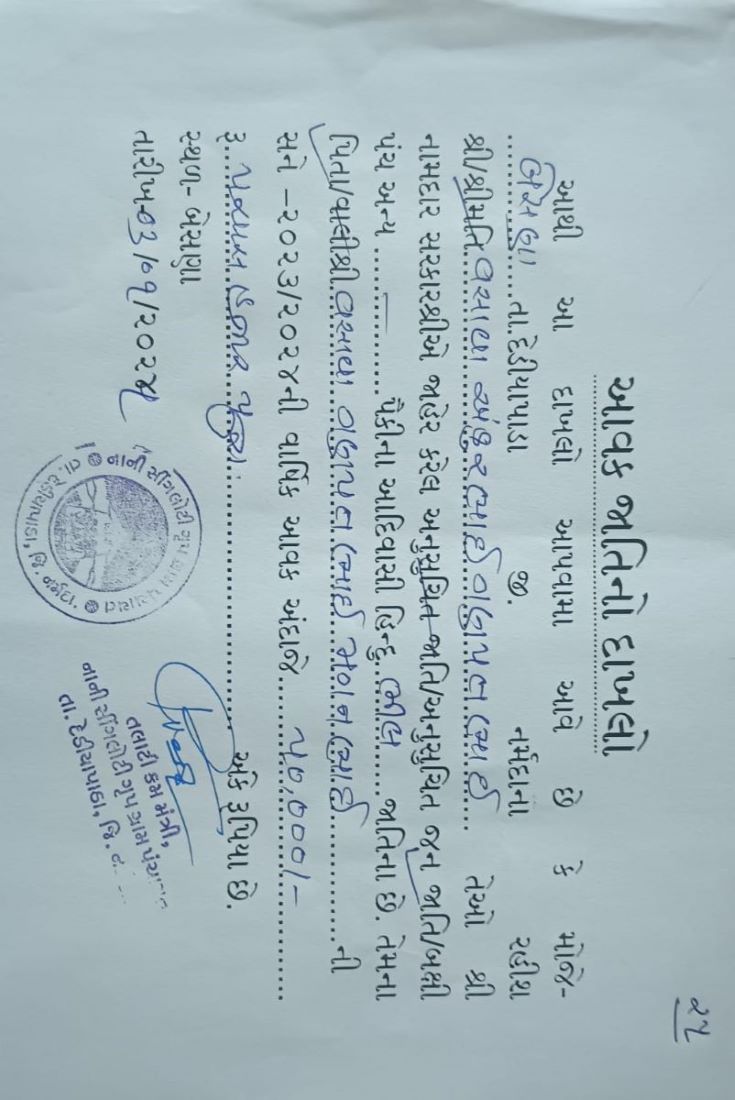 ૨૫
આવક જાતિનો દાખલો
આથી આ દાખલો આપવામા આવે છે કે મોજે-
બેસણા તા.દેડીયાપાડા જી. નર્મદાના રહીશ
શ્રી/શ્રીમતિ વસાવા ગણપતભાઈ તેઓ શ્રી
નામદાર સરકારશ્રીએ જાહેર કરેલ અનુસુચિત જાતિ/અનુસુચિત જન જાતિ/બક્ષી
પંચ અન્ય — પૈકીના આદિવાસી હિન્દુ ભીલ જાતિના છે. તેમના
પિતા/વાલીશ્રી વસાવા ગણપતભાઈ મગનભાઈ ની
સને -૨૦૨૩/૨૦૨૪ની વાર્ષિક આવક અંદાજે ૫૦,૦૦૦/-
રૂ. પચાસ હજાર પુરા. અંકે રૂપિયા છે.
સ્થળ- બેસણા
તારીખ-૦૩/૦૧/૨૦૨૫
નાની સીંગલોટી ગ્રુપ ગ્રામ પંચાયત
તા. દેડીયાપાડા, જી. નર્મદા.
તલાટી કમ મંત્રી,
નાની સીંગલોટી ગ્રુપ ગ્રામ પંચાયત
તા. દેડીયાપાડા, જી.